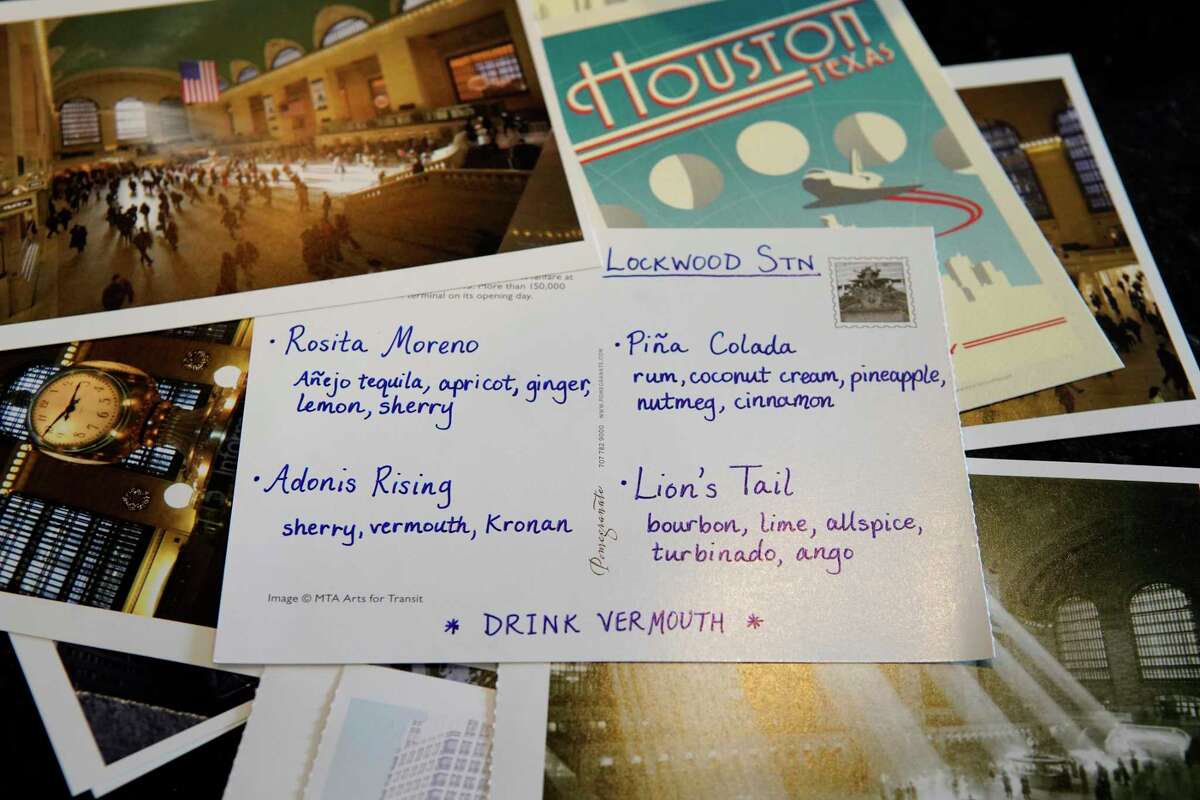 HOUSTON
TEXAS
fanfare at
More than 150,000
terminal on its opening day.
LOCKWOOD STN
• Rosita Moreno
Añejo tequila, apricot, ginger,
lemon, sherry
• Adonis Rising
sherry, vermouth, Kronan
Image © MTA Arts for Transit
Pomegranate 707 782 9000 WWW.POMEGRANATE.COM
• Piña Colada
rum, coconut cream, pineapple,
nutmeg, cinnamon
• Lion's Tail
bourbon, lime, allspice,
turbinado, ango
* DRINK VERMOUTH *